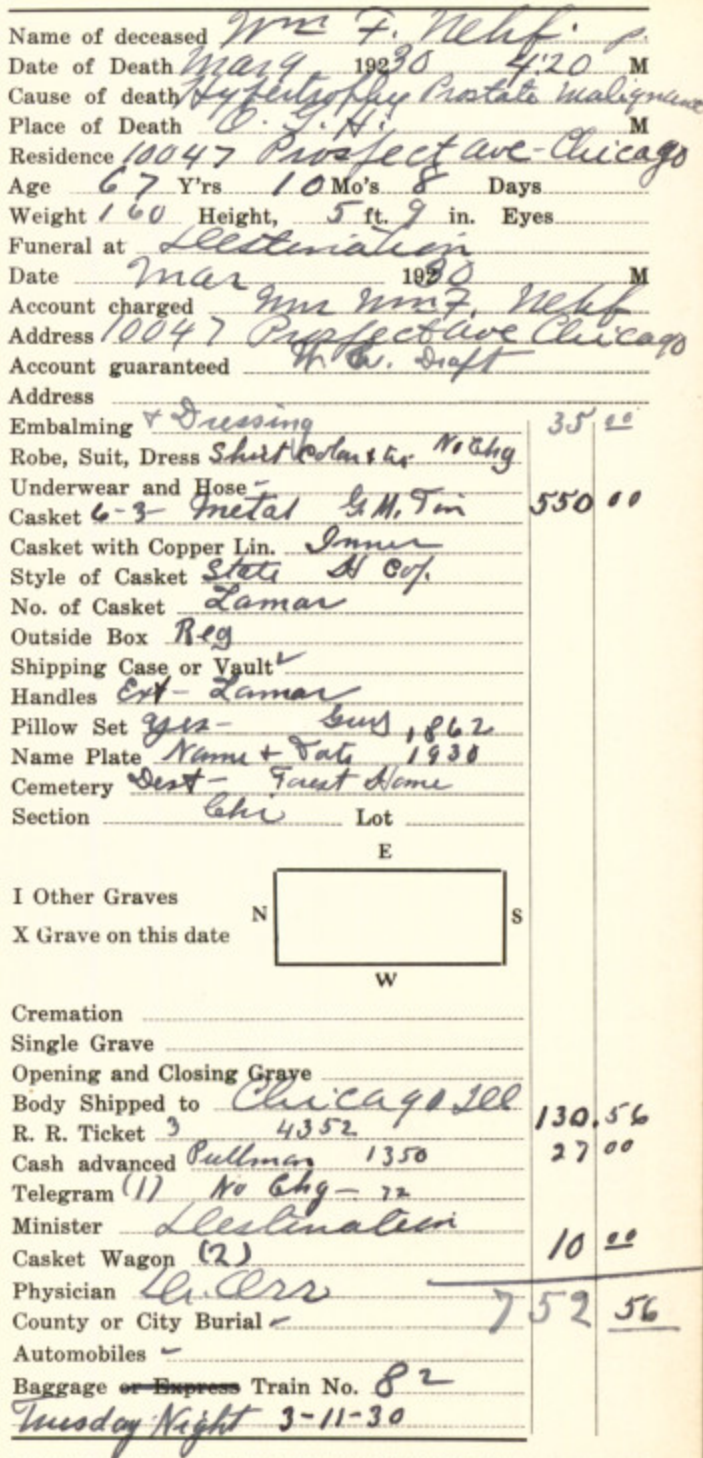 Name of deceased Wm F. Nehf. P.
Date of Death Mar 9 1930 4:20 M
Cause of death Hypertrophy Prostate Malignant
Place of Death O. G. H. M
Residence 10047 Prospect Ave - Chicago
Age 67 Y'rs 10 Mo's 8 Days
Weight 160 Height, 5 ft. 9 in. Eyes
Funeral at Destination
Date Mar 1930 M
Account charged Mrs Wm F. Nehf
Address 10047 Prospect Ave Chicago
Account guaranteed Draft
Address
Embalming & Dressing 35 00
Robe, Suit, Dress Shirt Colar & tie No Chg
Underwear and Hose -
Casket 6-3 Metal G.M. 550 00
Casket with Copper Lin. Inner
Style of Casket State
No. of Casket Lamar
Outside Box Reg
Shipping Case or Vault
Handles Ext - Lamar
Pillow Set yes - 1862
Name Plate Name & Date 1930
Cemetery Dest - Forest Home
Section Chi Lot
E
I Other Graves
N S
X Grave on this date
W
Cremation
Single Grave
Opening and Closing Grave
Body Shipped to Chicago Ill
R. R. Ticket 3 4352 130.56
Cash advanced Pullman 1350 27 00
Telegram (1) No Chg - 72
Minister Destination
Casket Wagon (2) 10 00
Physician Dr. Orr
County or City Burial - 752 56
Automobiles -
Baggage or Express Train No. 82
Tuesday Night 3-11-30